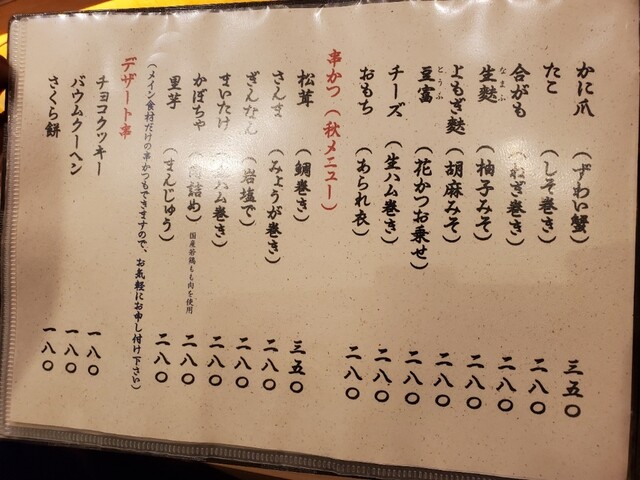 かに爪 （ずわい蟹） 三五〇
たこ （しそ巻き） 二八〇
合がも （ねぎ巻き） 二八〇
生麩 （柚子みそ） 二八〇
なまふ
よもぎ麩 （胡麻みそ） 二八〇
豆富 （花かつお乗せ） 二八〇
とうふ
チーズ （生ハム巻き） 二八〇
おもち （あられ衣） 二八〇
串かつ （秋メニュー）
松茸 （鯛巻き） 三五〇
さんま （みょうが巻き） 二八〇
ぎんなん （岩塩で） 二八〇
まいたけ ハム巻き） 二八〇
かぼちゃ 詰め） 国産若鶏もも肉を使用 二八〇
里芋 （まんじゅう） 二八〇
（メイン食材だけの串かつもできますので、お気軽にお申し付け下さい）
デザート串
チョコクッキー 一八〇
バウムクーヘン 一八〇
さくら餅 一八〇